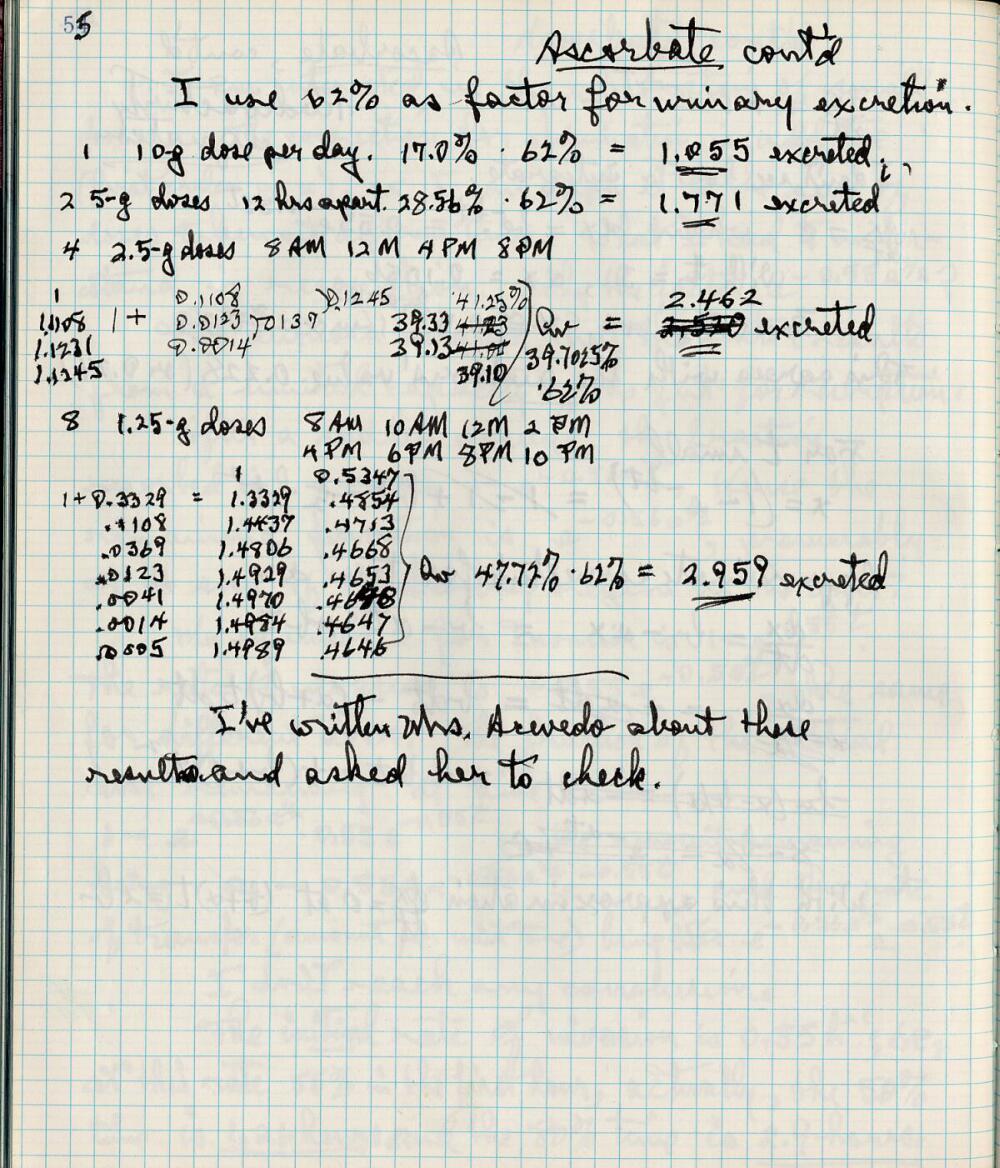 55
Ascorbate cont'd
I use 62% as factor for urinary excretion.
1 10g dose per day. 17.0% · 62% = 1.055 excreted.
2 5-g doses 12 hrs apart. 28.56% · 62% = 1.771 excreted
4 2.5-g doses 8 AM 12 M 4 PM 8 PM
1 0.1108 0.1245 41.25% 2.462
1.1108 1 + 0.0123 0137 39.33 Av = excreted
1.1231 0.0014 39.13 39.7025%
1.1245 39.10 ·62%
8 1.25-g doses 8 AM 10 AM 12 M 2 PM
4 PM 6 PM 8 PM 10 PM
1 0.5347
1 + 0.3329 = 1.3329 .4854
.1108 1.4437 .4713
.0369 1.4806 .4668
.0123 1.4929 .4653 Av 47.72% · 62% = 2.959 excreted
.0041 1.4970
.0014 1.4984 .4647
.0005 1.4989 .4646
I've written Mrs. Acevedo about these
results and asked her to check.